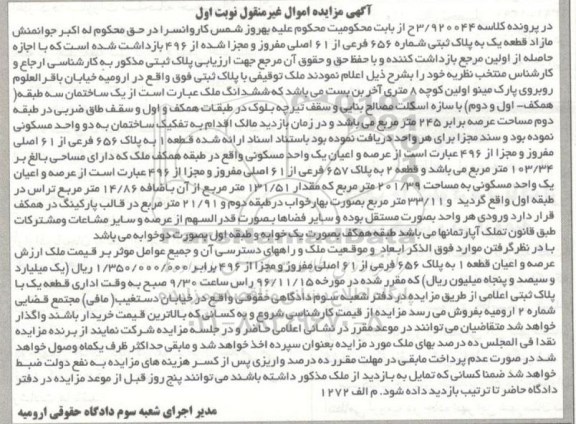 آگهی مزایده اموال غیرمنقول نوبت اول
در پرونده کلاسه ۳/۹۲۰۰۴۴ح از بابت محکومیت محکوم علیه بهروز شمس کاروانسرا در حق محکوم له اکبر جوانمنش
مازاد قطعه یک به پلاک ثبتی شماره ۶۵۶ فرعی از ۶۱ اصلی مفروز و مجزا شده از ۴۹۶ بازداشت شده است که با اجازه
حاصله از اولین مرجع بازداشت کننده و با حفظ حق و حقوق آن مرجع جهت ارزیابی پلاک ثبتی مذکور به کارشناسی ارجاع و
کارشناس منتخب نظریه خود را بشرح ذیل اعلام نمودند ملک توقیفی با پلاک ثبتی فوق واقع در ارومیه خیابان باقرالعلوم
روبروی پارک مینو اولین کوچه ۸ متری آخر بن بست می باشد که ششدانگ ملک عبارت است از یک ساختمان سه طبقه(
همکف- اول و دوم) با سازه اسکلت مصالح بنایی و سقف تیرچه بلوک در طبقات همکف و اول و سقف طاق ضربی در طبقه
دوم مساحت عرصه برابر ۲۴۵ متر مربع می باشد و در زمان بازدید مالک اقدام به تفکیک ساختمان به دو واحد مسکونی
نموده بود و سند مجزا برای هر واحد دریافت نموده بود باستناد اسناد ارائه شده قطعه ۱ به پلاک ۶۵۶ فرعی از ۶۱ اصلی
مفروز و مجزا از ۴۹۶ عبارت است از عرصه و اعیان یک واحد مسکونی واقع در طبقه همکف ملک که دارای مساحی بالغ بر
۱۰۳/۳۴ متر مربع می باشد و قطعه ۲ به پلاک ۶۵۷ فرعی از ۶۱ اصلی مفروز و مجزا از ۴۹۶ عبارت است از عرصه و اعیان
یک واحد مسکونی به مساحت ۲۰۱/۳۹ متر مربع که مقدار ۱۳۱/۵۱ متر مربع از آن باضافه ۱۴/۸۶ متر مربع تراس در
طبقه اول واقع گردید و ۳۳/۱۱ متر مربع بصورت بهارخواب در طبقه دوم و ۲۱/۹۱ متر مربع در قالب پارکینگ در همکف
قرار دارد ورودی هر واحد بصورت مستقل بوده و سایر فضاها بصورت قدرالسهم از عرصه و سایر مشاعات ومشترکات
طبق قانون تملک آپارتمانها می باشد طبقه همکف بصورت یک خوابه و طبقه اول بصورت دوخوابه می باشد
با در نظرگرفتن موارد فوق الذکر ابعاد و موقعیت ملک و راههای دسترسی آن و جمیع عوامل موثر بر قیمت ملک ارزش
عرصه و اعیان قطعه ۱ به پلاک ۶۵۶ فرعی از ۶۱ اصلی مفروز و مجزا از ۴۹۶ برابر ۱/۳۵۰/۰۰۰/۰۰۰ ریال (یک میلیارد
و سیصد و پنجاه میلیون ریال) که مقرر شده در مورخه ۹۶/۱۱/۱۵ راس ساعت ۹/۳۰ صبح به وقت اداری قطعه یک با
پلاک ثبتی اعلامی از طریق مزایده در دفتر شعبه سوم دادگاهی حقوقی واقع در خیابان دستغیب(مافی) مجتمع قضایی
شماره ۲ ارومیه بفروش می رسد مزایده از قیمت کارشناسی شروع و به کسانی که بالاترین قیمت خریدار باشند واگذار
خواهد شد متقاضیان می توانند در موعد مقرر در نشانی اعلامی حاضر و در جلسه مزایده شرکت نمایند از برنده مزایده
نقدا فی المجلس ده درصد بهای ملک مورد مزایده بعنوان سپرده اخذ خواهد شد و مابقی حداکثر ظرف یکماه وصول خواهد
شد در صورت عدم پرداخت مابقی در مهلت مقرر ده درصد واریزی پس از کسر هزینه های مزایده به نفع دولت ضبط
خواهد شد ضمنا کسانی که تمایل به بازدید از ملک مذکور داشته باشند می توانند پنج روز قبل از موعد مزایده در دفتر
دادگاه حاضر تا ترتیب بازدید داده شود. م الف ۱۲۷۲
مدیر اجرای شعبه سوم دادگاه حقوقی ارومیه